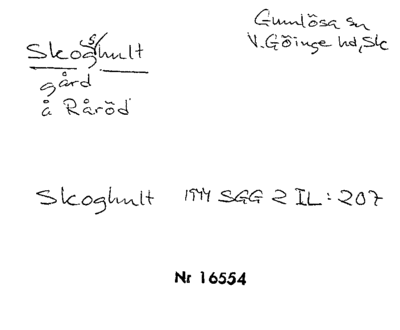 Skog(s)hult
gård
å Råröd
Gumlösa sn
V. Göinge hd, Sk
Skoghult 1944 SGG 2 IL: 207
Nr 16554